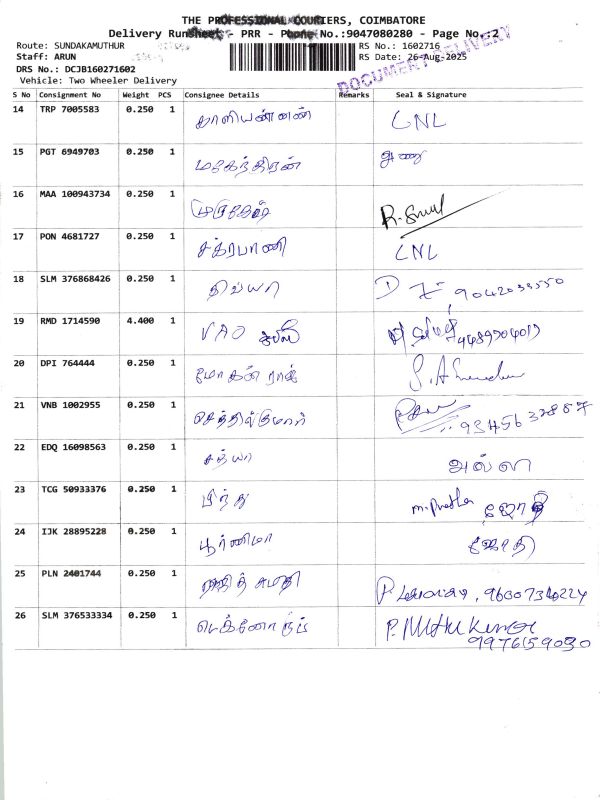 THE PROFESSIONAL COURIERS, COIMBATORE
Delivery Runsheet - PRR - Phone No.:9047080280 - Page No.:2
Route: SUNDAKAMUTHUR RS No.: 1602716
Staff: ARUN RS Date: 26-Aug-2025
DRS No.: DCJB160271602
DOCUMENT DELIVERY
Vehicle: Two Wheeler Delivery
S No Consignment No Weight PCS Consignee Details Remarks Seal & Signature
14 TRP 7005583 0.250 1 காளியண்ணன் LNL
15 PGT 6949703 0.250 1 மகேந்திரன் அனு
16 MAA 100943734 0.250 1 முருகேஷ்
17 PON 4681727 0.250 1 சக்ரபாணி LNL
18 SLM 376868426 0.250 1 திவ்யா
19 RMD 1714590 4.400 1 VAO
20 DPI 764444 0.250 1 மோகன் ராஜ்
21 VNB 1002955 0.250 1 செந்தில்குமார்
22 EDQ 16098563 0.250 1 சத்யா
23 TCG 50933376 0.250 1 பிந்து
24 IJK 28895228 0.250 1 பூர்ணிமா ஜோதி
25 PLN 2401744 0.250 1
26 SLM 376533334 0.250 1 P. Muthukumar
9976159030